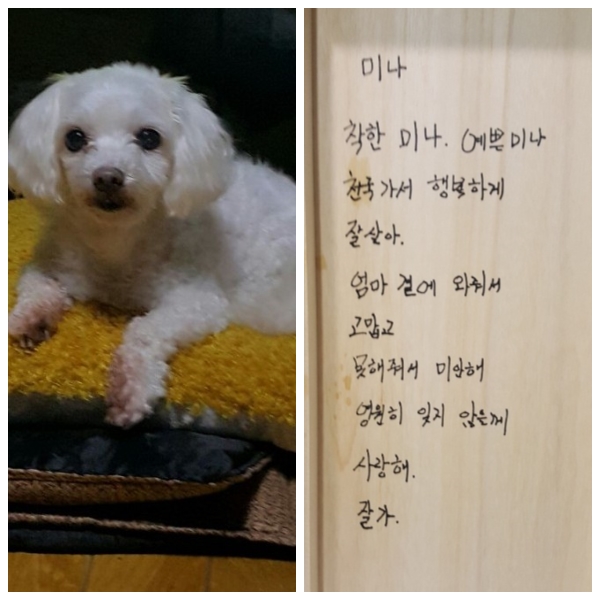 미나
착한 미나. 예쁜미나
천국가서 행복하게
잘살아.
엄마 곁에 와줘서
고맙고
못해줘서 미안해
영원히 잊지 않은께
사랑해.
잘가.